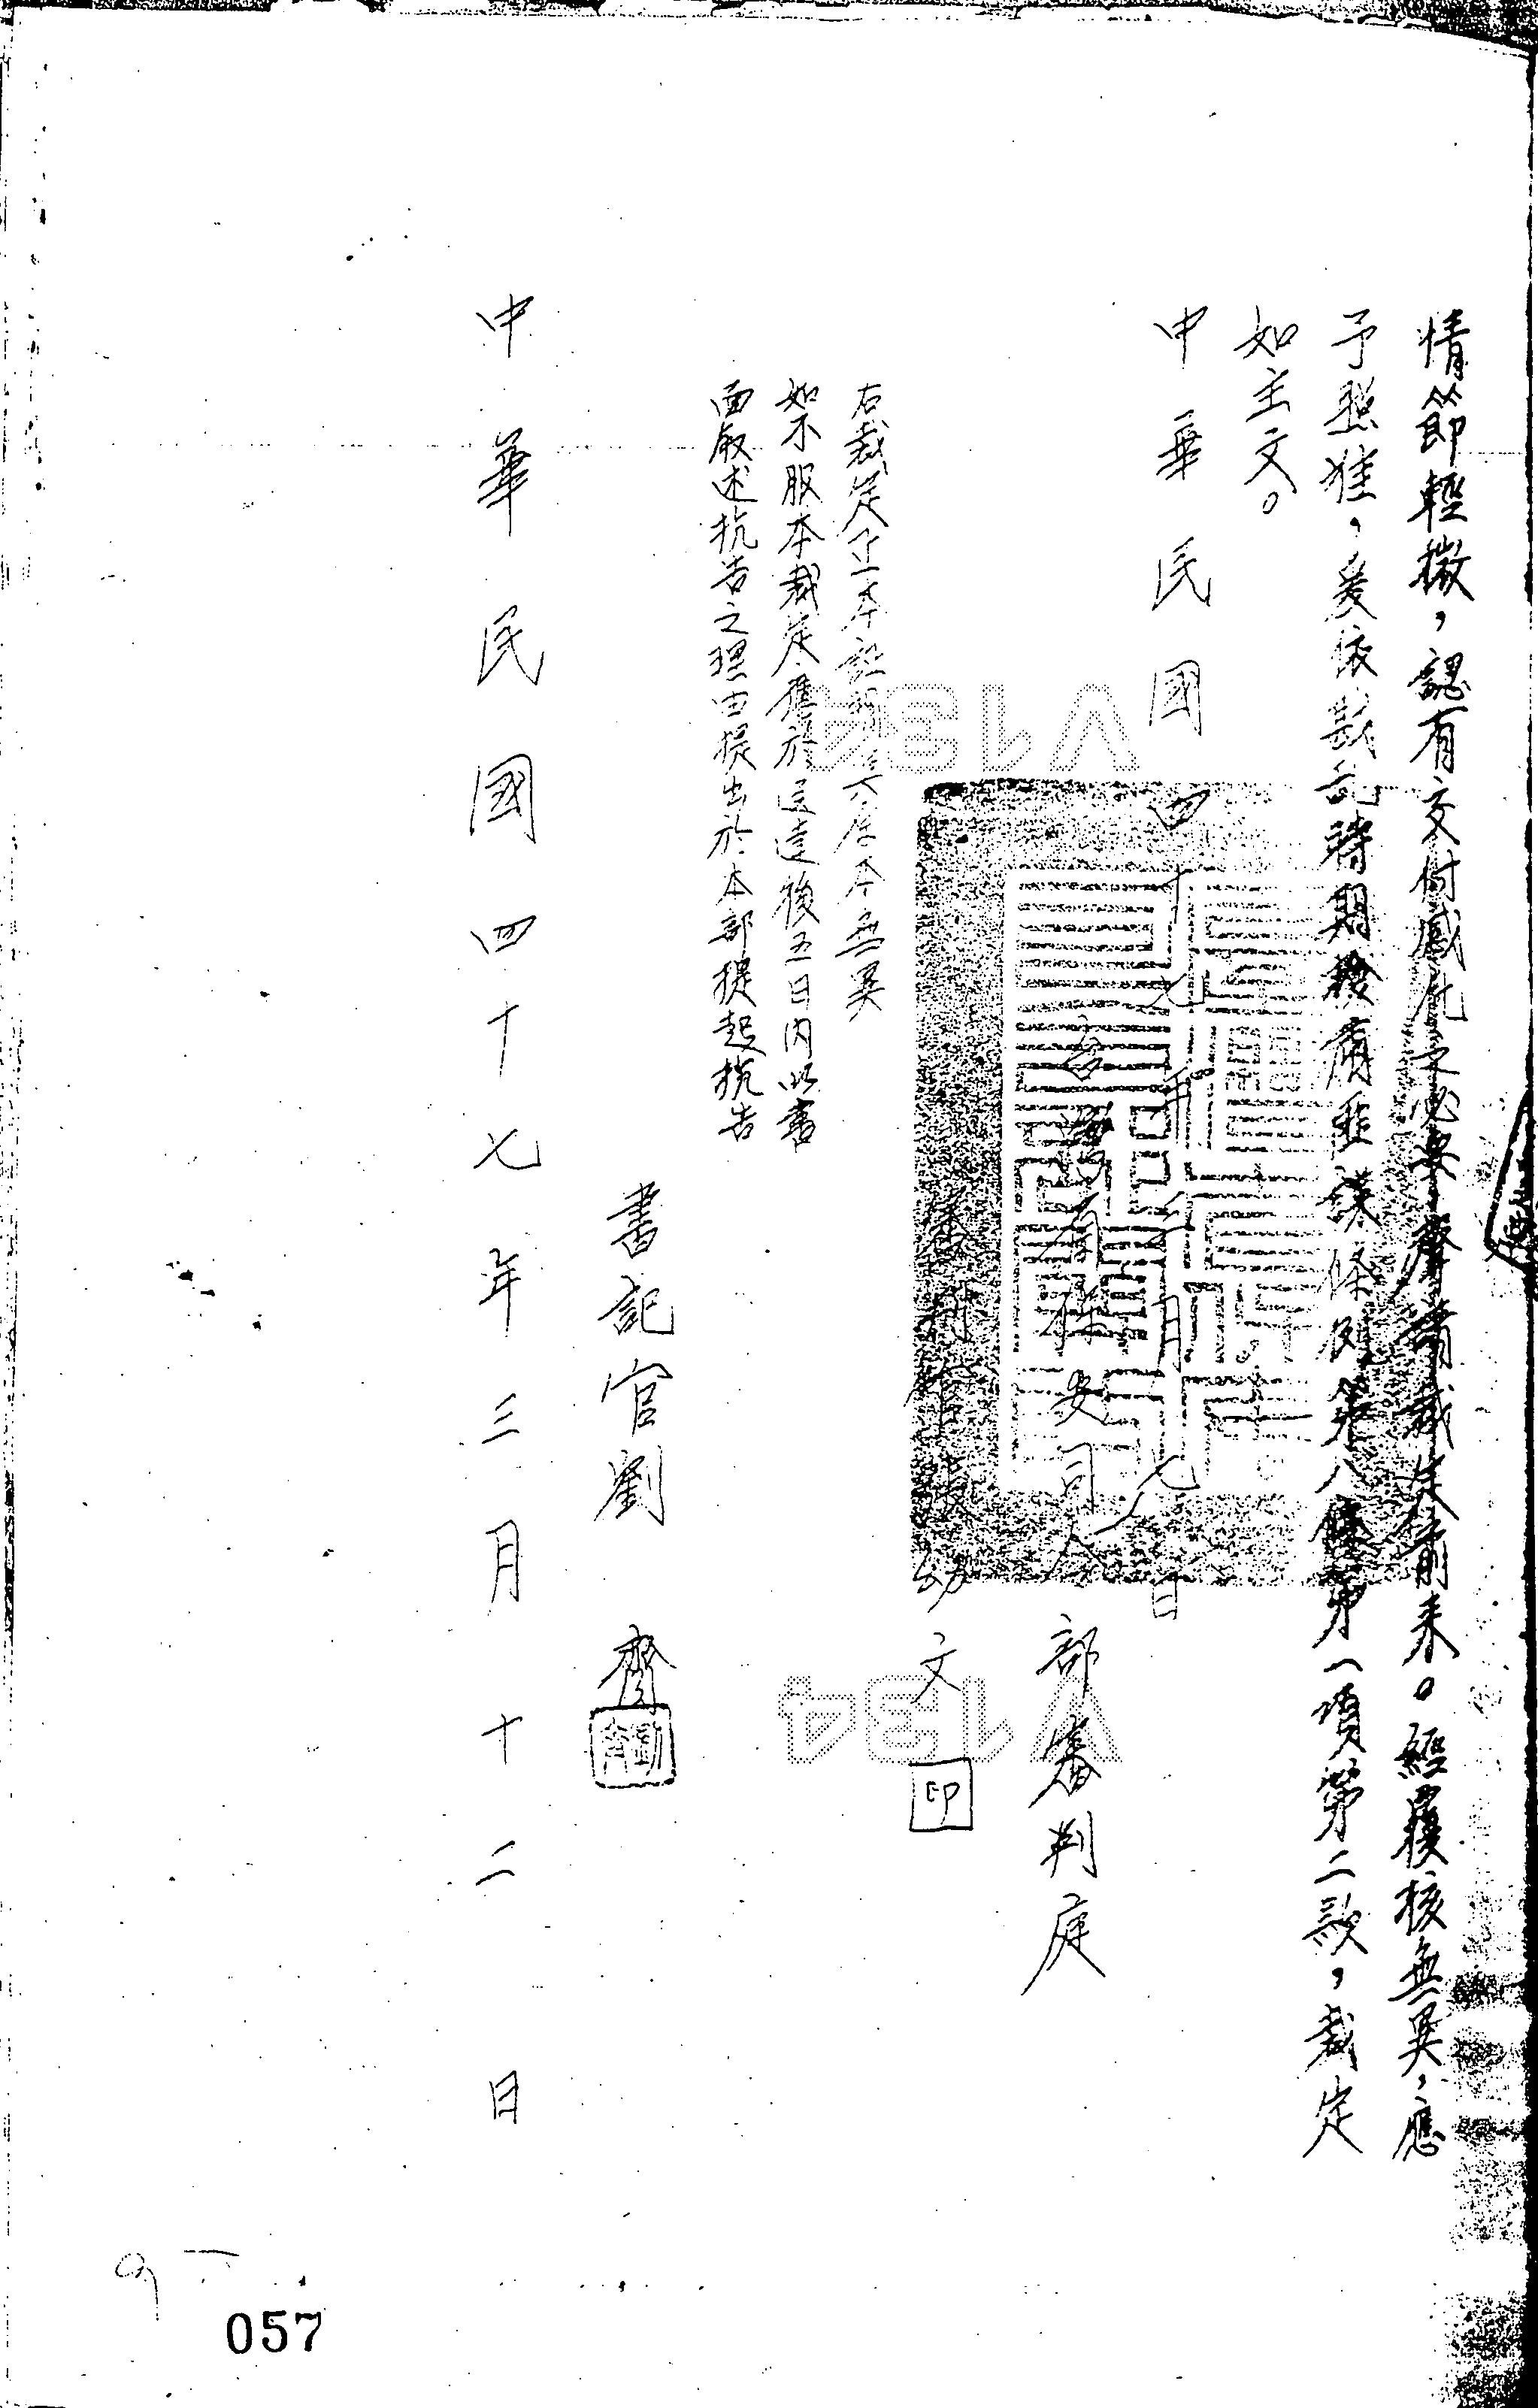 情節輕微，認有交付感化之必要，聲請裁定前來。經覆核無異，應
予照准，爰依戡亂時期檢肅匪諜條例第八條第一項第二款，裁定
如主文。
中華民國四十七年三月七日
台灣省保安司令部審判庭
審判官 幼文 印
右裁定正本證明與原本無異
如不服本裁定應於送達後五日內以書
面敘述抗告之理由提出於本部提起抗告
書記官劉 齊
中華民國四十七年三月十二日
057
V134
V134